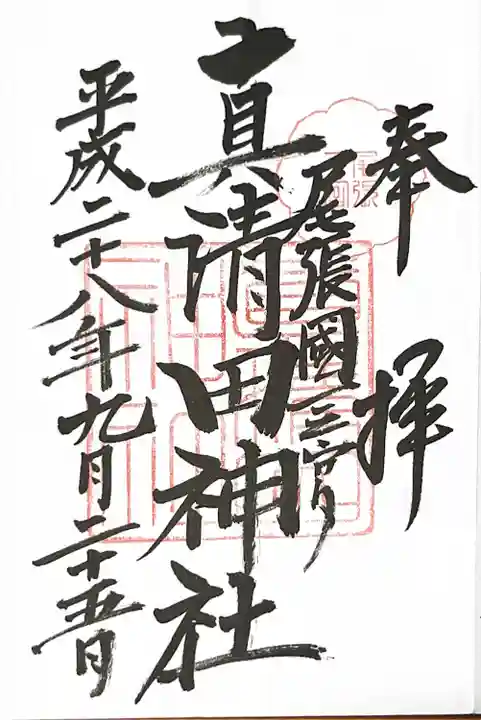 奉拝
尾張國一宮
真清田神社
平成二十八年九月二十五日
尾張